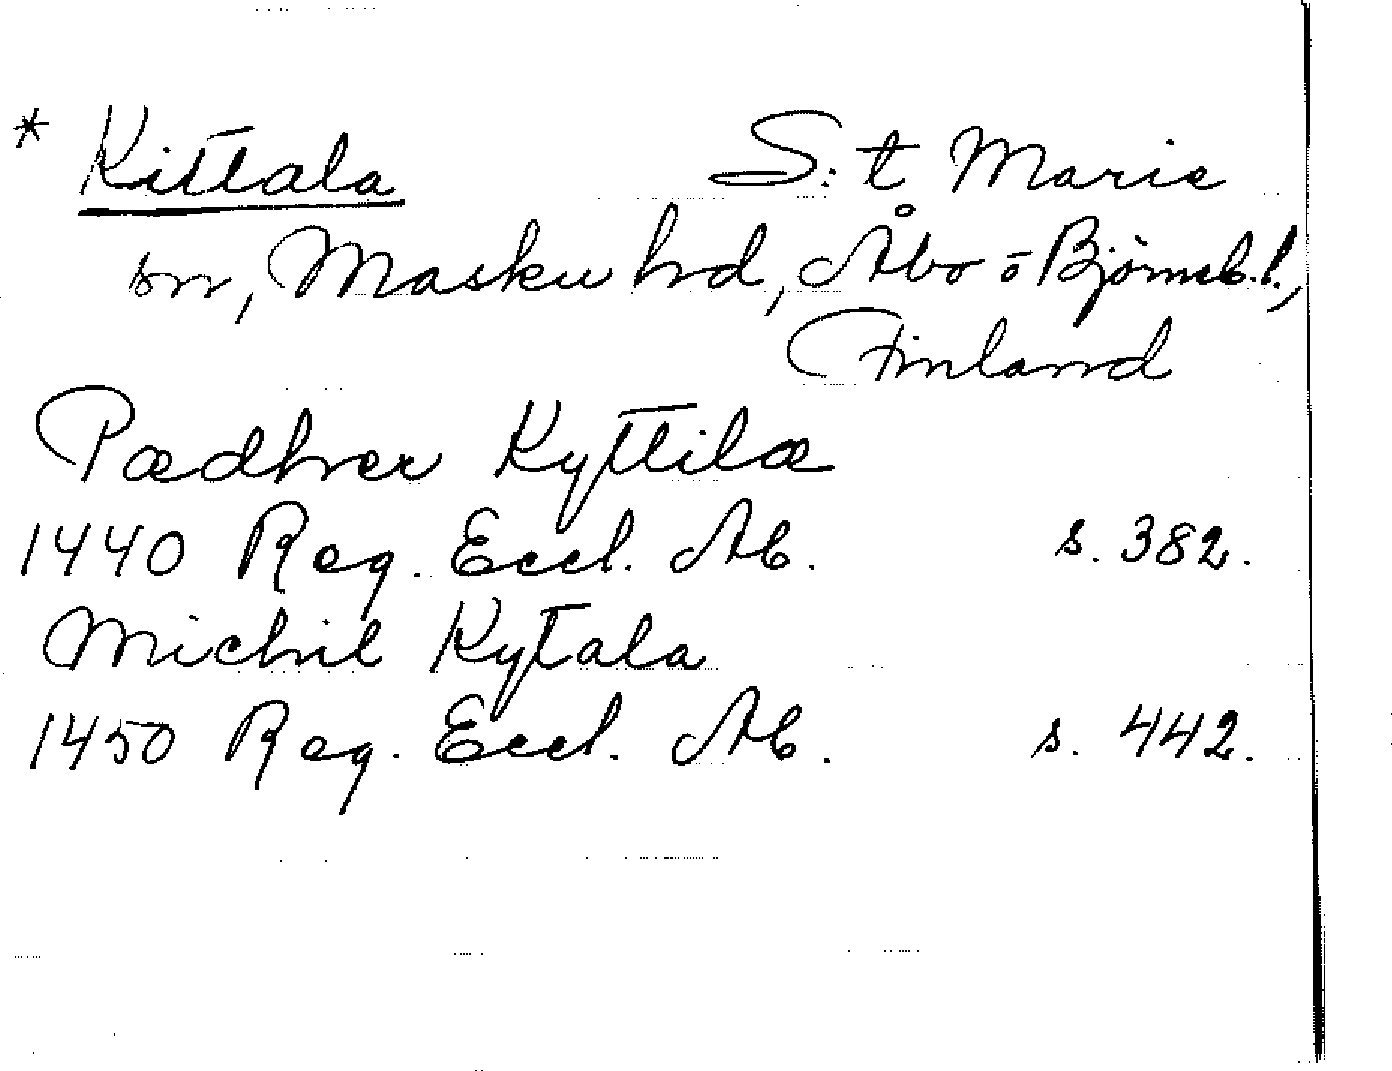 * Kittala S:t Marie
sn, Masku hrd, Åbo o Björneb.l.,
Finland
Pædhær Kyttilæ
1440 Reg. Eccl. Ab. s. 382.
Michil Kytala
1450 Reg. Eccl. Ab. s. 442.